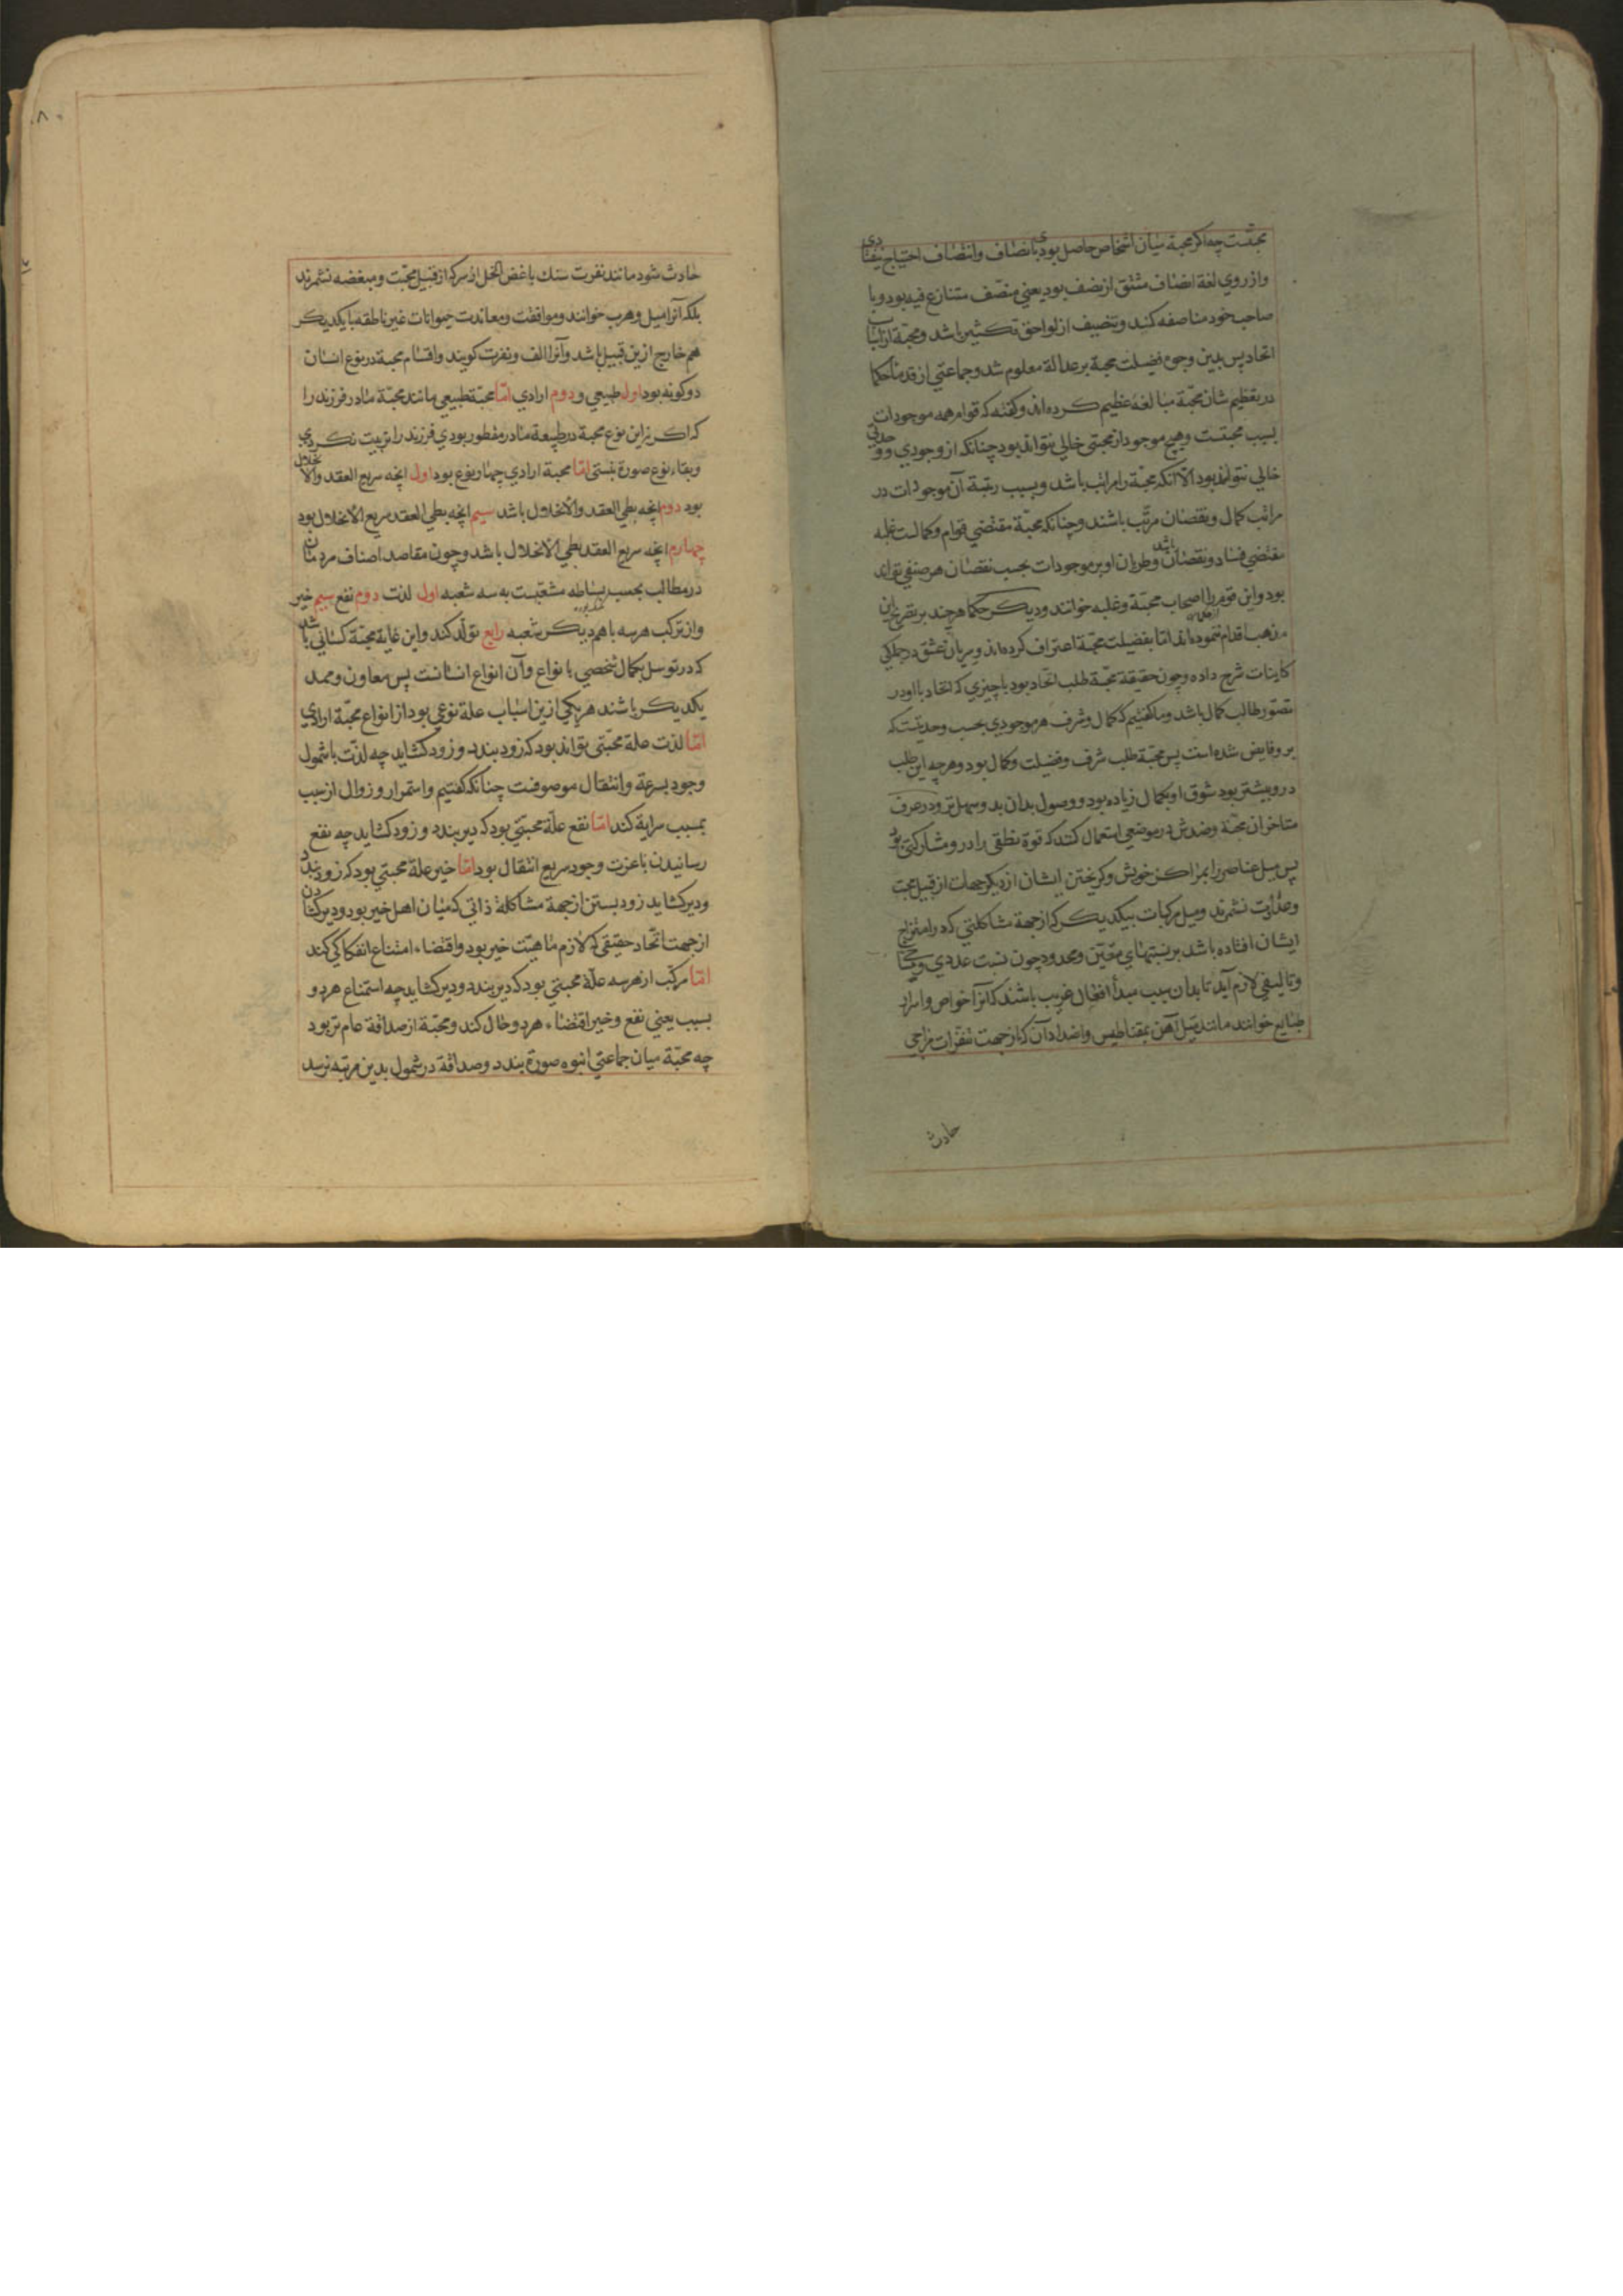 محبتست چه اکر محبة میان اشخاص حاصل بودی بانصاف وانتصاف احتیاج نیفتادی
واز روي لغة انصاف مشتق از نصف بود یعني منصف متنازع فیه بود وبا
صاحب خود مناصفه کند وتنصیف از لواحق تکثیر باشد ومحبّة از اسباب
اتحاد پس بدین وجوه فضیلت محبة بر عدالة معلوم شد وجماعتي از قدماء حکما
در تعظیم شان محبّة مبالغهٔ عظیم کرده اند وکفته که قوام همه موجودات
بسبب محبتست وهیچ موجود از محبتي خالي نتواند بود چنانکه از وجودي ووحدتي
خالي نتواند بود الّا آنکه محبّة را مراتب باشد وبسبب رتبة آن موجودات در
مراتب کمال ونقصان مرتّب باشند وچنانکه محبّة مقتضي قوام وکمالست غلبه
مقتضي فساد ونقصان باشد وطریان او بر موجودات بحسب نقصان هر صنفي تواند
بود واین قوم را اصحاب محبّة وغلبه خوانند ودیکر حکما هر چند بر تصریح این
مذهب اقدام ننموده اند امّا بفضیلت محبّة اعتراف کرده اند وسریان عشق در جملکي
کاینات شرح داده وچون حقیقة محبّة طلب اتّحاد بود با چیزي که اتحاد با او در
تصوّر طالب کمال باشد وما کفتیم که کمال وشرف هر موجودي بحسب وحدتیست که
برو فایض شده است پس محبّة طلب شرف وفضیلت وکمال بود وهر چه این طلب
درو بیشتر بود شوق او بکمال زیاده بود ووصول بدان بدو سهل تر ودر عرف
متاخران محبّة وضدش در موضعي استعمال کنند که قوة نطقي را درو مشارکتي بود
پس میل عناصر را بمراکز خویش وکریختن ایشان از دیکر جهات از قبیل محبت
وعداوت نشمرند ومیل مرکبات بیکدیکر که از جهة مشاکلتي که در امتزاج
ایشان افتاده باشد بر نسبتهاي معیّن ومحدود چون نسبت عددي ومساحي
وتالیفي لازم آید تا بدان سبب مبدأ افعال غریب باشند که آنرا خواص واسرار
طبایع خوانند مانند میل آهن بمقناطیس واضداد آن که از جهت تنفّرات مزاجي
حادث
۸۰
حادث شود مانند نفرت سنك باغض الخل از سرکه از قبیل محبّت ومبغضه نشمرند
بلکه آنرا میل وهرب خوانند وموافقت ومعاندت حیوانات غیر ناطقه با یکدیکر
هم خارج ازین قبیل باشد وآنرا الف ونفرت کویند واقسام محبة در نوع انسان
دو کونه بود اول طبیعي ودوم ارادي امّا محبّة طبیعي مانند محبّة مادر فرزند را
که اکر نه این نوع محبة در طبیعة مادر مفطور بودي فرزند را تربیت نکردي
وبقاء نوع صورة نبستي امّا محبة ارادي چهار نوع بود اول آنچه سریع العقد والانحلال
بود دوم آنچه بطي العقد والانحلال باشد سیم آنچه بطي العقد سریع الانحلال بود
چهارم آنچه سریع العقد بطي الانحلال باشد وچون مقاصد اصناف مردمان
در مطالب بحسب بساطه متشعّبست به سه شعبه اول لذت دوم نفع سیم خیر
واز ترکب هر سه با هم دیکر شعبه رابع تولّد کند واین غایة محبّة کساني باشد
که در توسل بکمال شخصي با نواع وآن انواع انسانست پس معاون وممد
یکدیکر باشند هر یکي ازین اسباب علة نوعي بود از انواع محبّة ارادي
امّا لذت علة محبّتي تواند بود که زود بندد وزود کشاید چه لذّت با شمول
وجود بسرعة وانتقال موصوفست چنانکه کفتیم واستمرار وزوال از سبب
بمسبب سرایة کند امّا نفع علّة محبّتي بود که دیر بندد وزود کشاید چه نفع
رسانیدن با عزت وجود سریع انتقال بود امّا خیر علة محبتي بود که زود بندد
ودیر کشاید زود بستن از جهة مشاکلهٔ ذاتي که میان اهل خیر بود ودیر کشادن
از جهت اتّحاد حقیقي که لازم ماهیّت خیر بود واقتضاء امتناع انفکاکي کند
امّا مرکّب از هر سه علّة محبتي بود که دیر بندد ودیر کشاید چه استمناع هر دو
بسبب یعني نفع وخیر اقتضاء هر دو حال کند ومحبّة از صداقة عام تر بود
چه محبّة میان جماعتي انبوه صورة بندد وصداقة در شمول بدین مرتبه نرسد